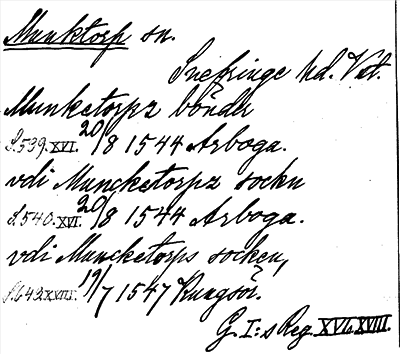 Munktorp sn.
Snefringe hd. Vstm.
Munketorpz bönder
S.539.XVI. 20/8 1544 Arboga.
vdi Muncketorpz sockn
S.540.XVI. 20/8 1544 Arboga.
vdi Muncketorps socken,
19/7 1547 Kungsör.
G. I:s Reg. XVI. XVIII.